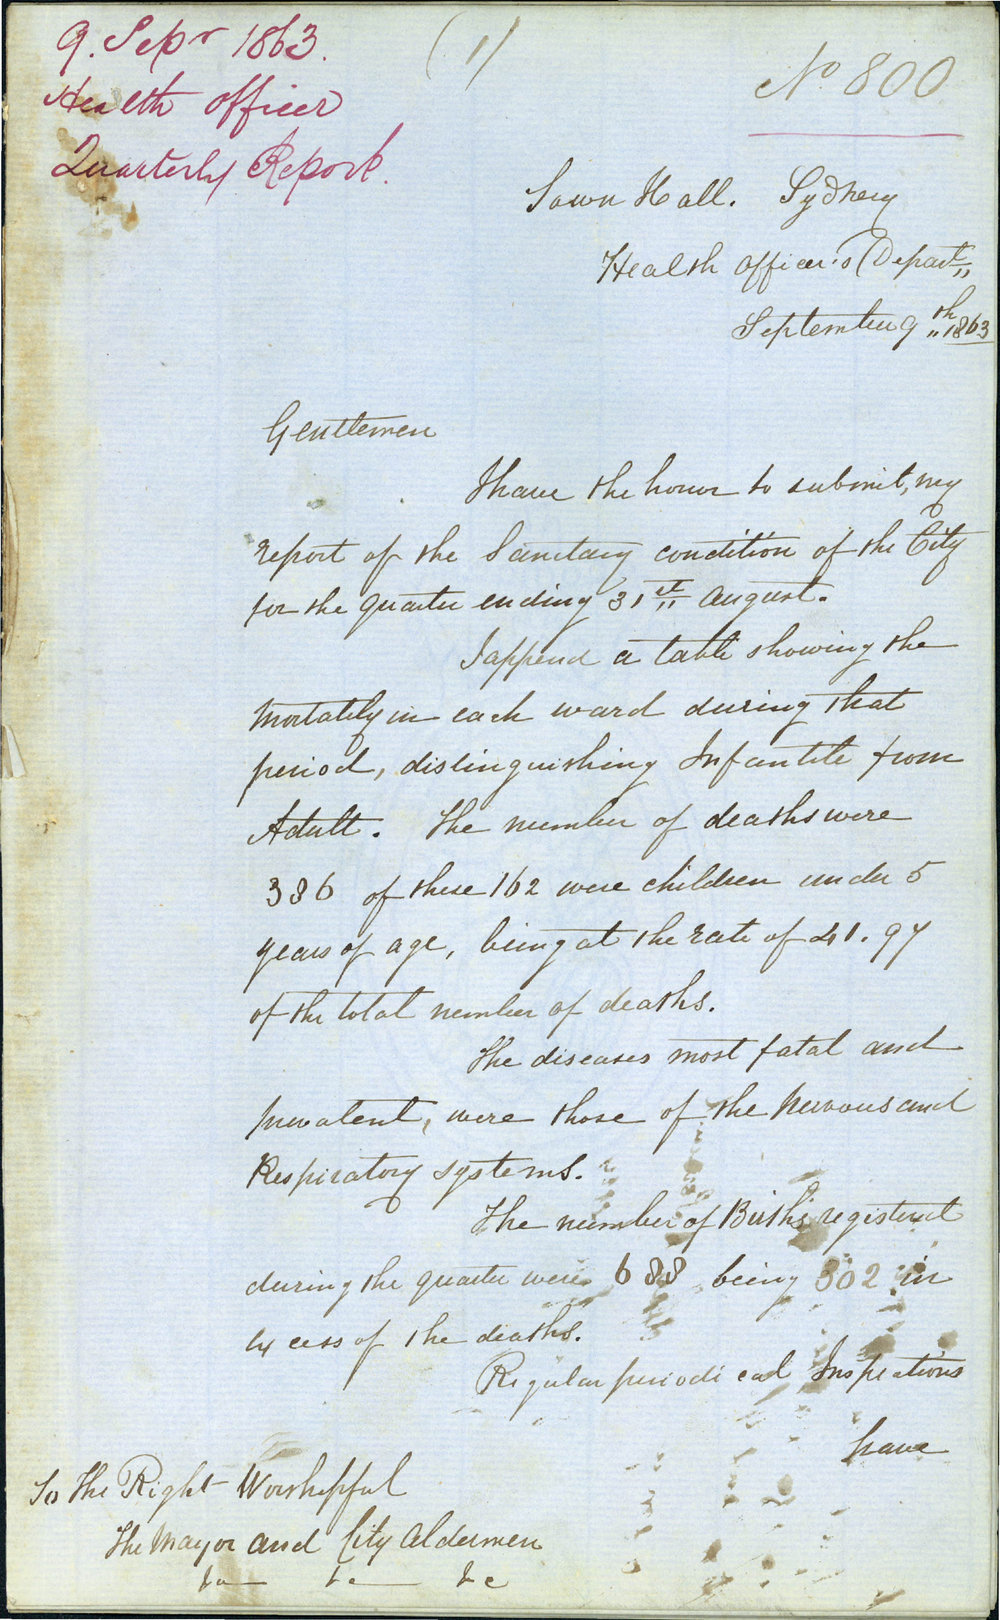 9. Sepr 1863.
Health Officer
Quarterly Report.
(1)
No 800
Town Hall. Sydney
Health Officer's Depart
September 9th 1863
Gentlemen
I have the honor to submit, my
report of the Sanitary condition of the City
for the quarter ending 31st August.
I append a table showing the
Mortality in each ward during that
period, distinguishing Infantile from
Adult. The number of deaths were
386 of these 162 were children under 5
years of age, being at the rate of 41.97
of the total number of deaths.
The diseases most fatal and
prevalent, were those of the Nervous and
Respiratory systems.
The number of Births registered
during the quarter were 688 being 302 in
excess of the deaths.
Regular periodical Inspections
have
To The Right Worshipful
The Mayor and City Aldermen
&c &c &c